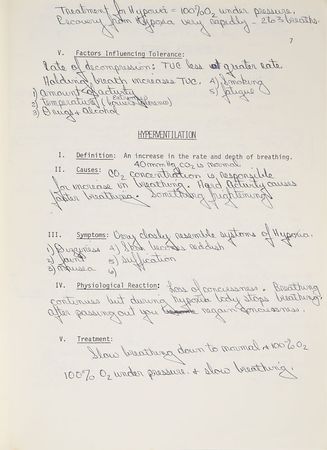 Treatment for Hypoxia = 100% O2 under pressure.
Recovery from Hypoxia very rapidly - 2 to 3 breaths.
7
V. Factors Influencing Tolerance:
Rate of decompression: TUC less at greater rate.
Holding breath increases TUC. 4) Smoking
1) Amount of activity 5) fatigue
2) Temperature (
3) Drugs + Alcohol
HYPERVENTILATION
I. Definition: An increase in the rate and depth of breathing.
40 mm Hg CO2 is normal
II. Causes: CO2 concentration is responsible
for increase in breathing. Hard Activity causes
faster breathing. Something frightening
III. Symptoms: Very closely resemble symtoms of Hypoxia.
1) Dizzyness 4) becomes reddish
2) faint 5) suffication
3) nausea 6)
IV. Physiological Reaction: Loss of conciousness. Breathing
continues but during hypoxia body stops breathing.
After passing out you regain conciousness.
V. Treatment:
Slow breathing down to normal + 100% O2
100% O2 under pressure. + slow breathing.